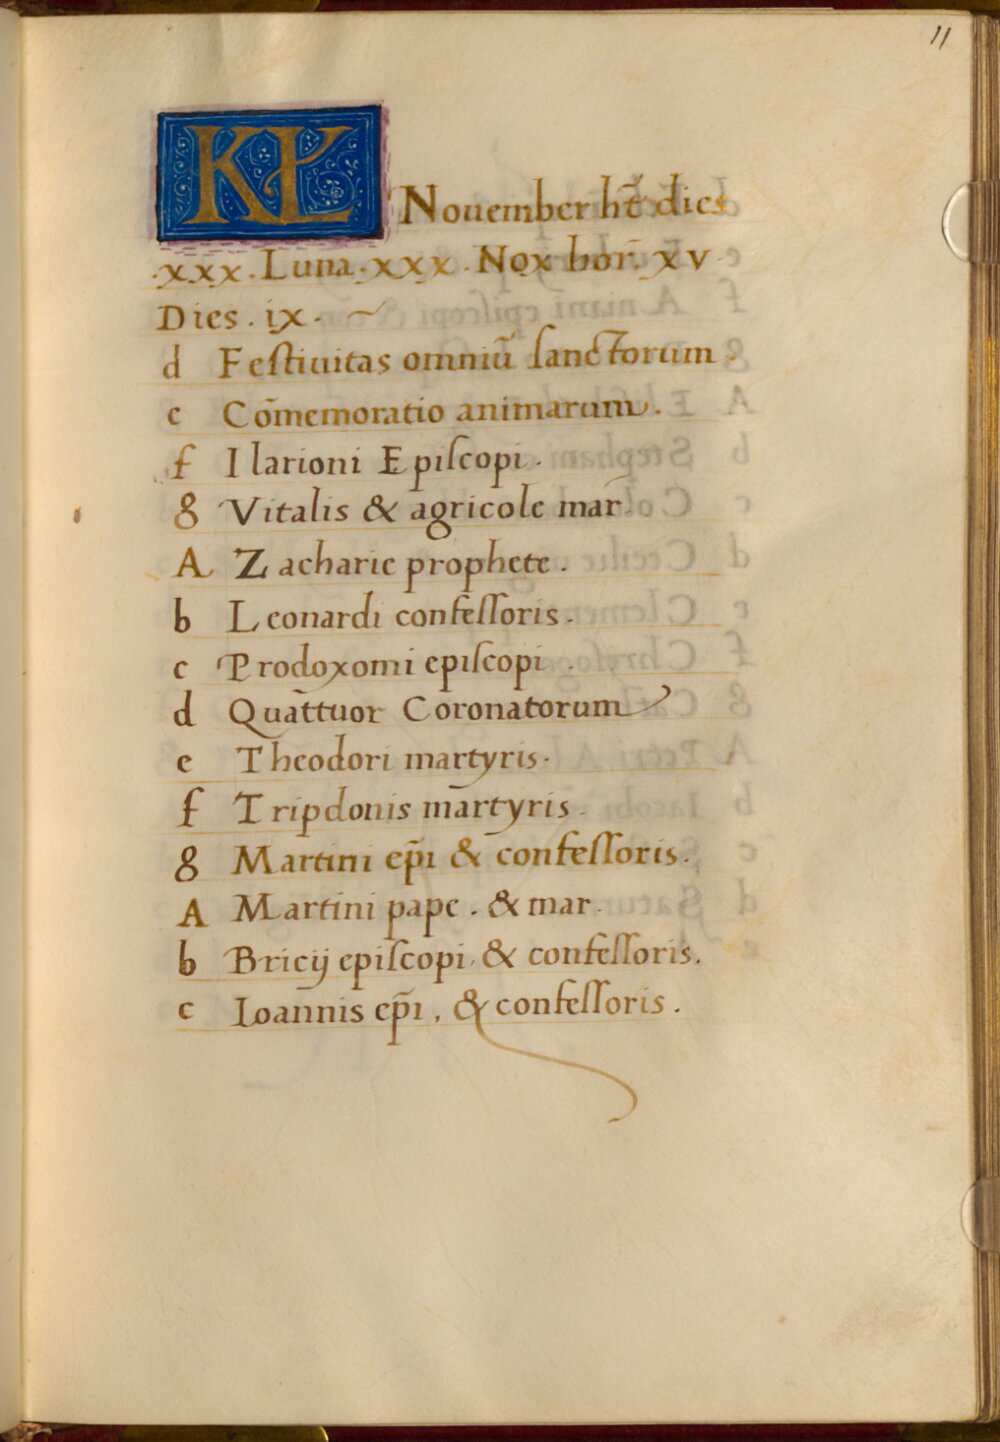 11
KL Nouember ht̄ dies
.xxx. Luna .xxx. Nox hor̄. xv
Dies. ix.
d Festiuitas omniū sanctorum
e Cōmemoratio animarum.
f Ilarioni Episcopi.
g Vitalis & agricole mar̄.
A Zacharie prophete.
b Leonardi confessoris.
c Prodoxomi episcopi.
d Quāttuor Coronatorum
e Theodori martyris.
f Tripdonis mārtyris.
g Martini ep̄i & confessoris.
A Martini pape. & mar.
b Bricij episcopi, & confessoris.
c Ioannis ep̄i, & confessoris.